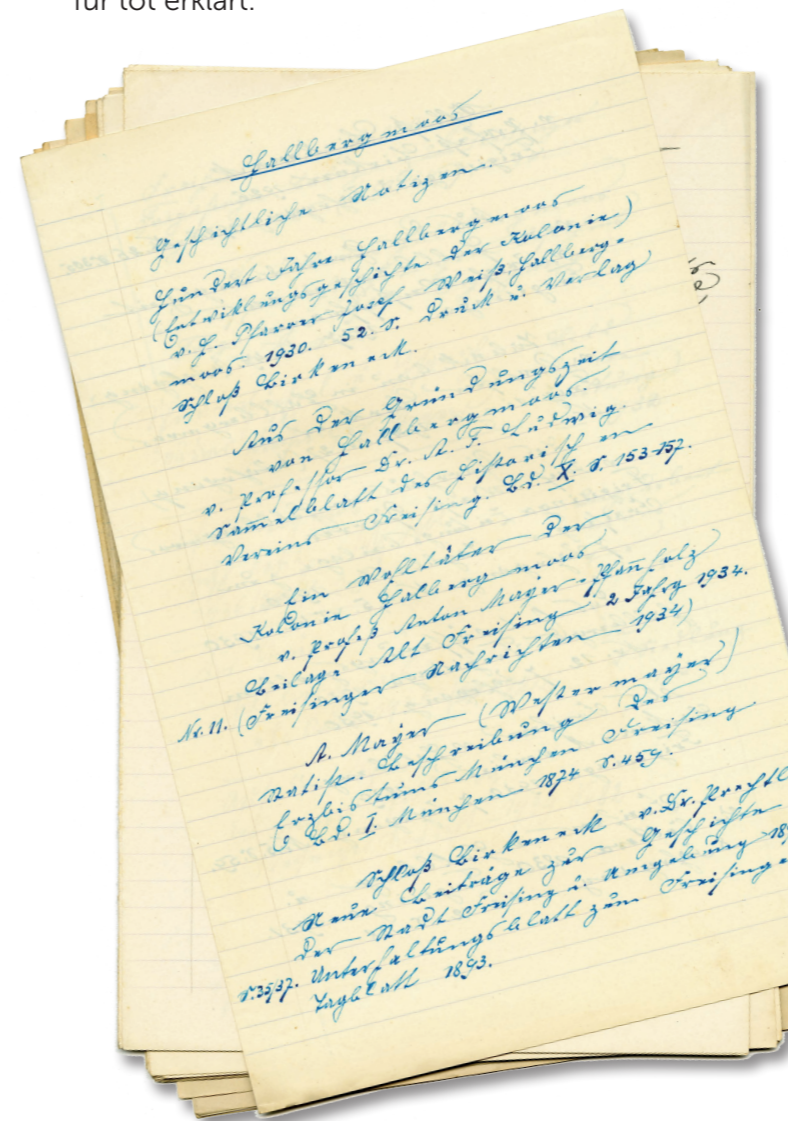 für tot erklärt.
Hallbergmoos
Geschichtliche Notizen.
Hundert Jahre Hallbergmoos
(Entwicklungsgeschichte der Kolonie)
v. H. Pfarrer Josef Weiß. Hallberg-
moos. 1930. 52. S. Druck u. Verlag
Schloß Birkeneck.
Aus der Gründungszeit
von Hallbergmoos.
v. Professor Dr. A. F. Ludwig.
Sammelblatt des Historischen
Vereins Freising. Bd. X. S. 153-157.
Ein Wohltäter der
Kolonie Hallbergmoos
v. Profeß Anton Mayer-Pfannholz
Beilage Alt Freising 2 Jahrg 1934.
Nr. 11. (Freisinger Nachrichten 1934)
A. Mayer (Westermayer)
Statist. Beschreibung des
Erzbistums München Freising
Bd. I. München 1874 S. 459.
Schloß Birkeneck v. Dr. Prechtl
Neue Beiträge zur Geschichte
der Stadt Freising u. Umgebung
S. 35/37. Unterhaltungsblatt zum Freisinger
Tagblatt 1893.